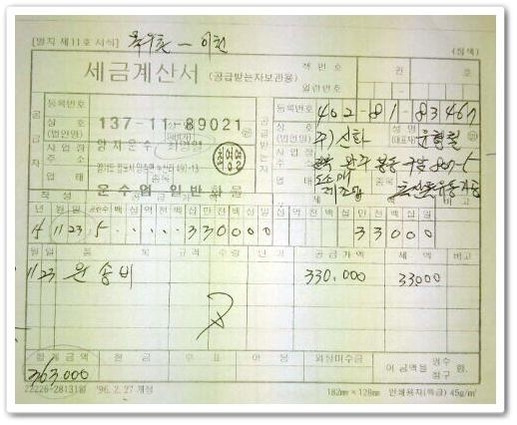 [별지 제11호 서식]
(청색)
세금계산서 (공급받는자보관용)
책 번 호 권 호
일련번호
등록번호 137-11-89021
등록번호 402-81-83467
상 호 (법인명)
양지운수
상 호 (법인명) 주)신화 성 명 (대표자)
사 업 장 주 소
업 태 운수업 일반화물
업 태 도소매 제조업 종목
작 성 공 급 가 액 세 액 비 고
년 월 일 공란수 백 십 억 천 백 십 만 천 백 십 일 십 억 천 백 십 만 천 백 십 일
11 23 5 330000 33000
월 일 품 목 규 격 수 량 단 가 공 급 가 액 세 액 비 고
11 23 운송비 330.000 33000
합 계 금 액 현 금 수 표 어 음 외상미수금
이 금액을 영수 청구 함.
363.000
22226-28131일 '96. 2. 27 개정
182㎜×128㎜ 인쇄용지(특급) 45g/㎡